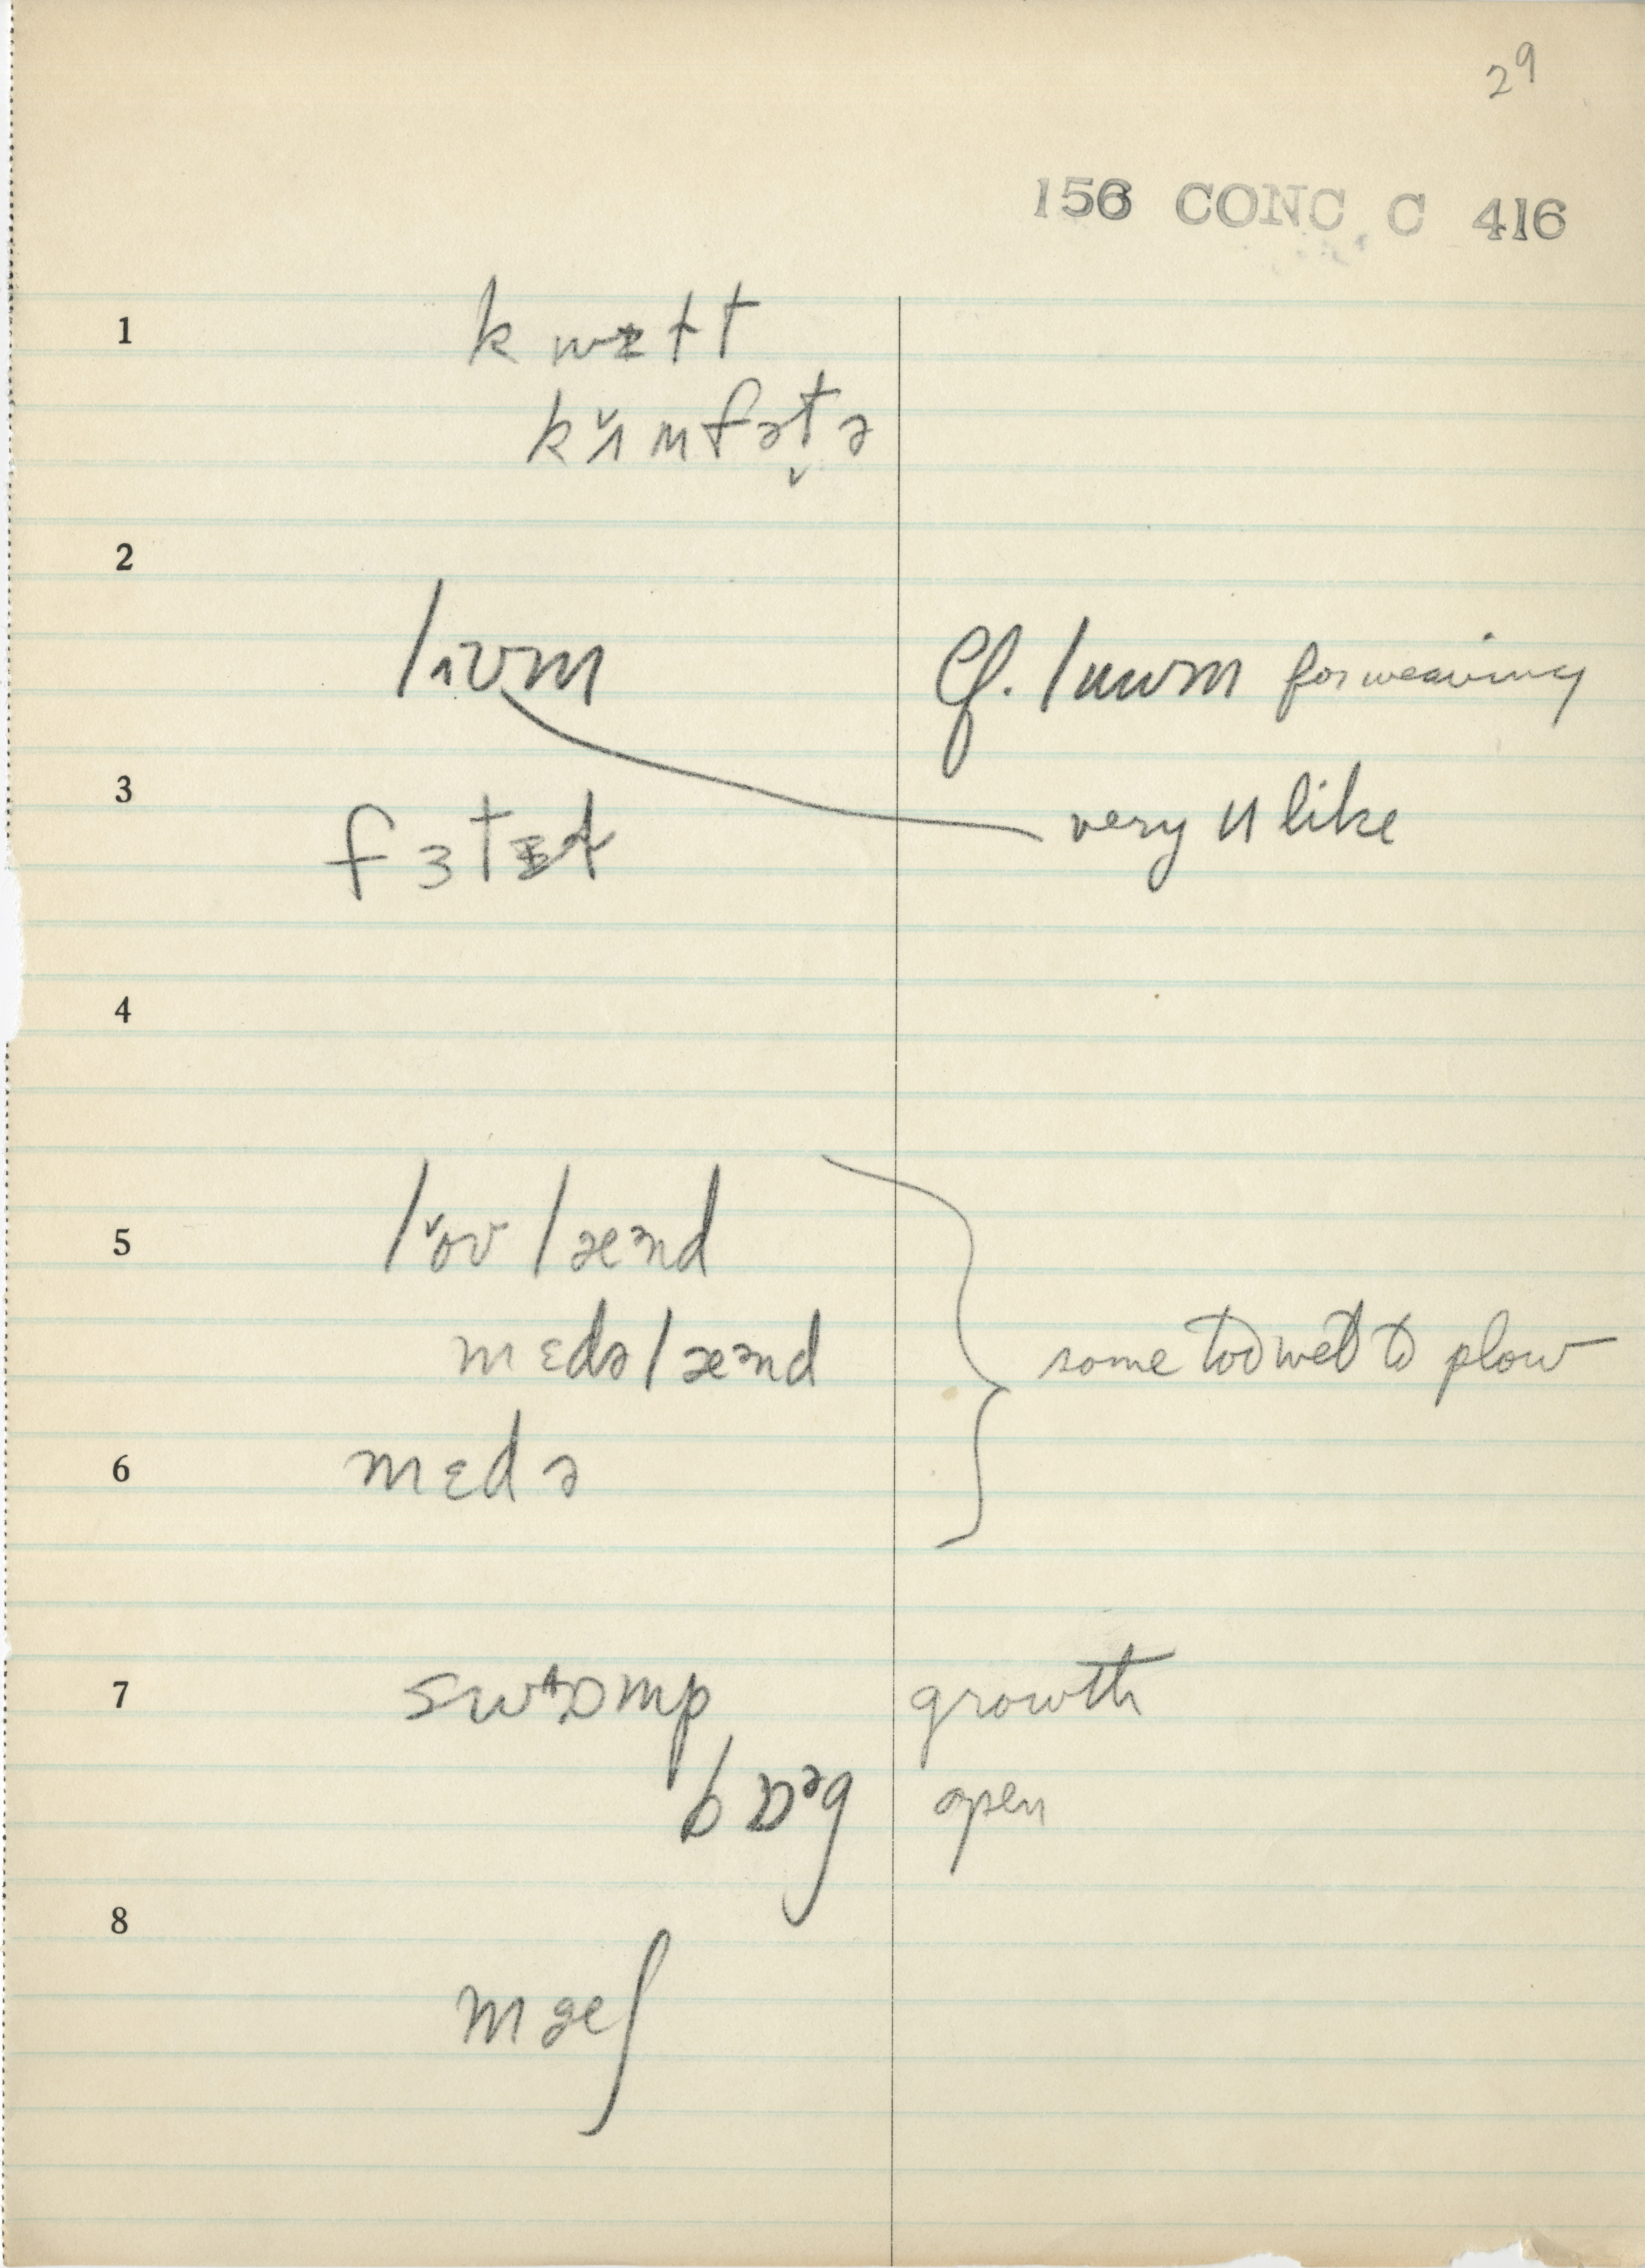 29
156 CONC C 416
1 kwɪlt
kʌ̆mfət̬ə
2
lɪʊm Cf. luʊm for weaving
3 very u like
f ɜ tɪd
4
5 lŏʊ læᵊnd
mɛdəlæᵊnd some too wet to plow
6 mɛdə
7 swɒmp growth
bɒᵊg open
8
mæʃ